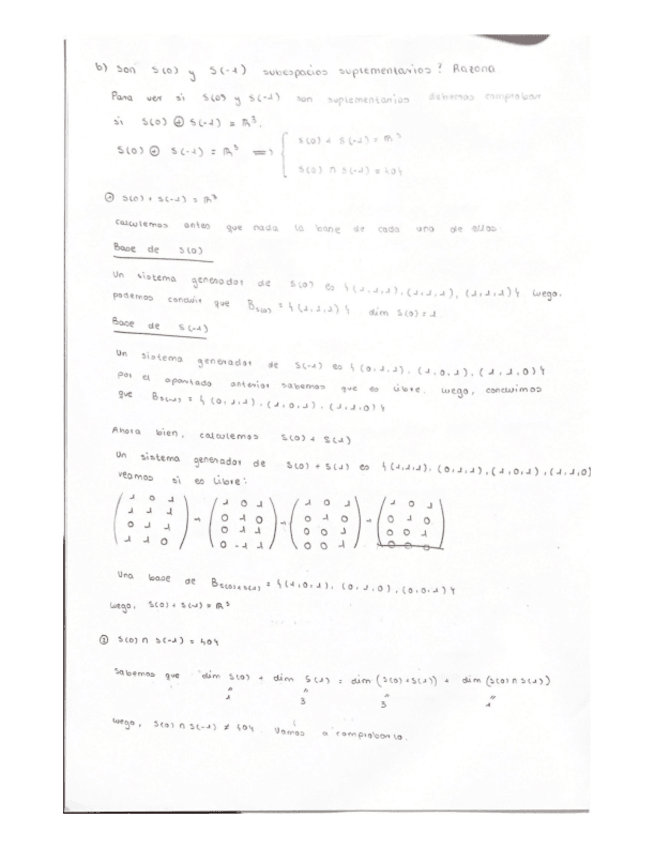 b) Son S(0) y S(-1) subespacios suplementarios? Razona
Para ver si S(0) y S(-1) son suplementarios debemos comprobar
si S(0) ⊕ S(-1) = ℝ³.
S(0) ⊕ S(-1) = ℝ³ ⟹ { S(0) + S(-1) = ℝ³
S(0) ∩ S(-1) = {0}
① S(0) + S(-1) = ℝ³
Calculemos antes que nada la base de cada uno de ellos
Base de S(0)
Un sistema generador de S(0) es {(1,1,1), (1,1,1), (1,1,1)} luego,
podemos concluir que B_{S(0)} = {(1,1,1)} dim S(0) = 1
Base de S(-1)
Un sistema generador de S(-1) es {(0,1,1), (1,0,1), (1,1,0)}
por el apartado anterior sabemos que es libre, luego, concluimos
que B_{S(-1)} = {(0,1,1), (1,0,1), (1,1,0)}
Ahora bien, calculemos S(0) + S(1)
Un sistema generador de S(0) + S(1) es {(1,1,1), (0,1,1), (1,0,1), (1,1,0)
veamos si es libre:
(1 0 1) (1 0 1) (1 0 1) (1 0 1)
(1 1 1) (0 1 0) (0 1 0) (0 1 0)
(0 1 1) (0 1 1) (0 0 1) (0 0 1)
(1 1 0) (0 -1 1) (0 0 1) (0 0 0)
Una base de B_{S(0)+S(1)} = {(1,0,1), (0,1,0), (0,0,1)}
luego, S(0) + S(-1) = ℝ³
② S(0) ∩ S(-1) = {0}
Sabemos que dim S(0) + dim S(1) = dim (S(0)+S(1)) + dim (S(0)∩S(1))
1 3 3 1
luego, S(0) ∩ S(-1) ≠ {0}. Vamos a comprobarlo.